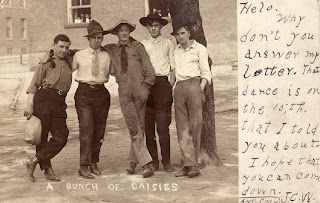 Helo.
Why
don't you
answer my
letter. That
dance is on
the 15th.
that I told
you about.
I hope that
you can come
down. J.C.W.
A BUNCH OF DAISIES